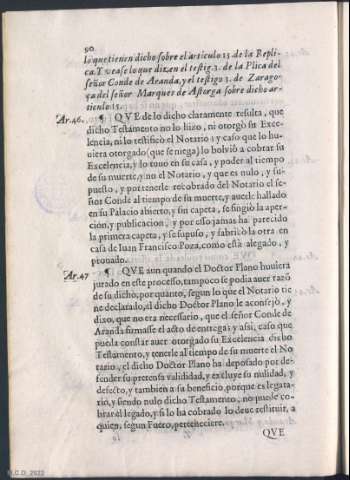 90
lo que tienen dicho sobre el articulo 15. de la Repli-
ca. Y vease lo que dizen el testig. 3. de la Plica del
señor Conde de Aranda, y el testigo 3. de Zarago-
ça del señor Marques de Astorga sobre dicho ar-
ticulo 15.
Ar. 46. ¶ QVE de lo dicho claramente resulta, que
dicho Testamento no lo hizo, ni otorgò su Exce-
lencia, ni lo testificò el Notario: y caso que lo hu-
uiera otorgado (que se niega) lo boluiò a cobrar su
Excelencia, y lo tuuo en su casa, y poder al tiempo
de su muerte, y no el Notario, y que es nulo, y su-
puesto, y por tenerle recobrado del Notario el se-
ñor Conde al tiempo de su muerte, y auerle hallado
en su Palacio abierto, y sin capeta, se fingiò la aper-
cion, y publicacion, y por esso jamas ha parecido
la primera capeta, y se supuso, y fabricò la otra en
casa de Iuan Francisco Poza, como està alegado, y
prouado.
Ar. 47 ¶ QVE aun quando el Doctor Plano huuiera
jurado en este processo, tampoco se podia auer razõ
de su dicho, porquanto, segun lo que el Notario tie
ne declarado, el dicho Doctor Plano le aconsejò, y
dixo, que no era necessario, que el señor Conde de
Aranda firmasse el acto de entrega: y assi, caso que
pueda constar auer otorgado su Excelencia dicho
Testamento, y tenerle al tiempo de su muerte el No
tario, el dicho Doctor Plano hà deposado por de-
fender su pretensa valididad, y excluye su nulidad, y
defecto, y tambien a su beneficio, porque es legata-
rio, y siendo nulo dicho Testamento, no puede co-
brar el legado, y si lo ha cobrado lo deue restituir, a
quien, segun Fuero, perteneciere.
QVE